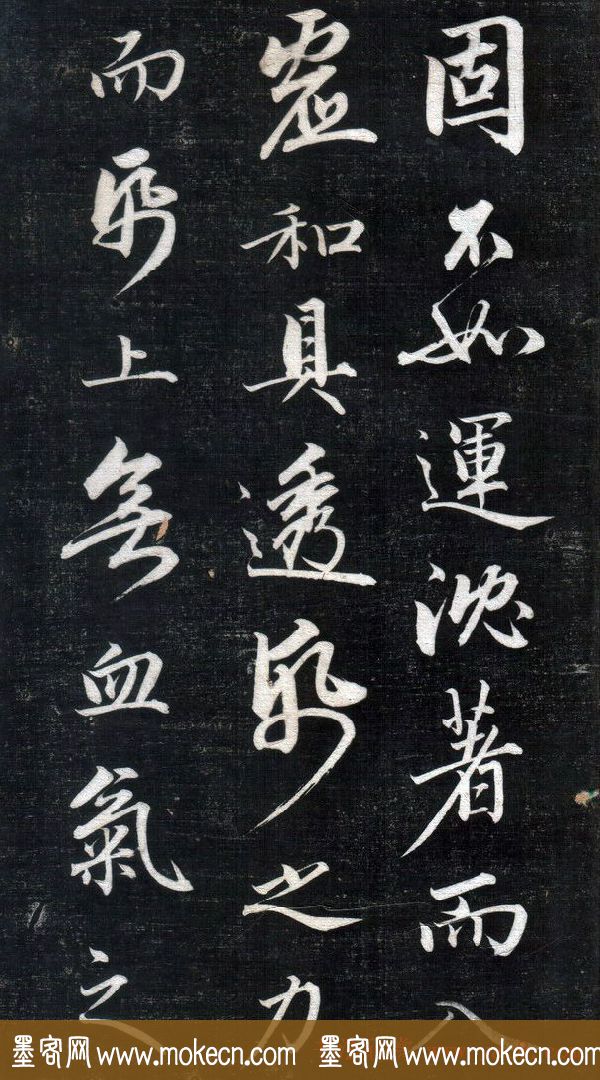 固不如運沈著而入
虛和具透帋之力
而帋上無血氣之
墨客网 www.mokecn.com 墨客网 www.mokecn.com